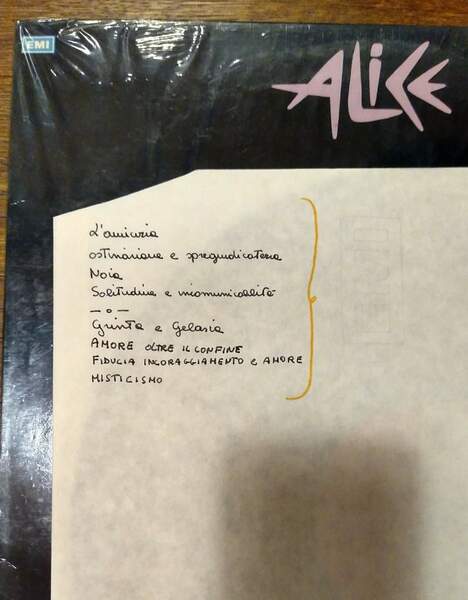 EMI
ALICE
L'amicizia
ostinazione e spregiudicatezza
Noia
Solitudine e incomunicabilità
— o —
Grinta e Gelosia
AMORE OLTRE IL CONFINE
FIDUCIA INCORAGGIAMENTO e AMORE
MISTICISMO